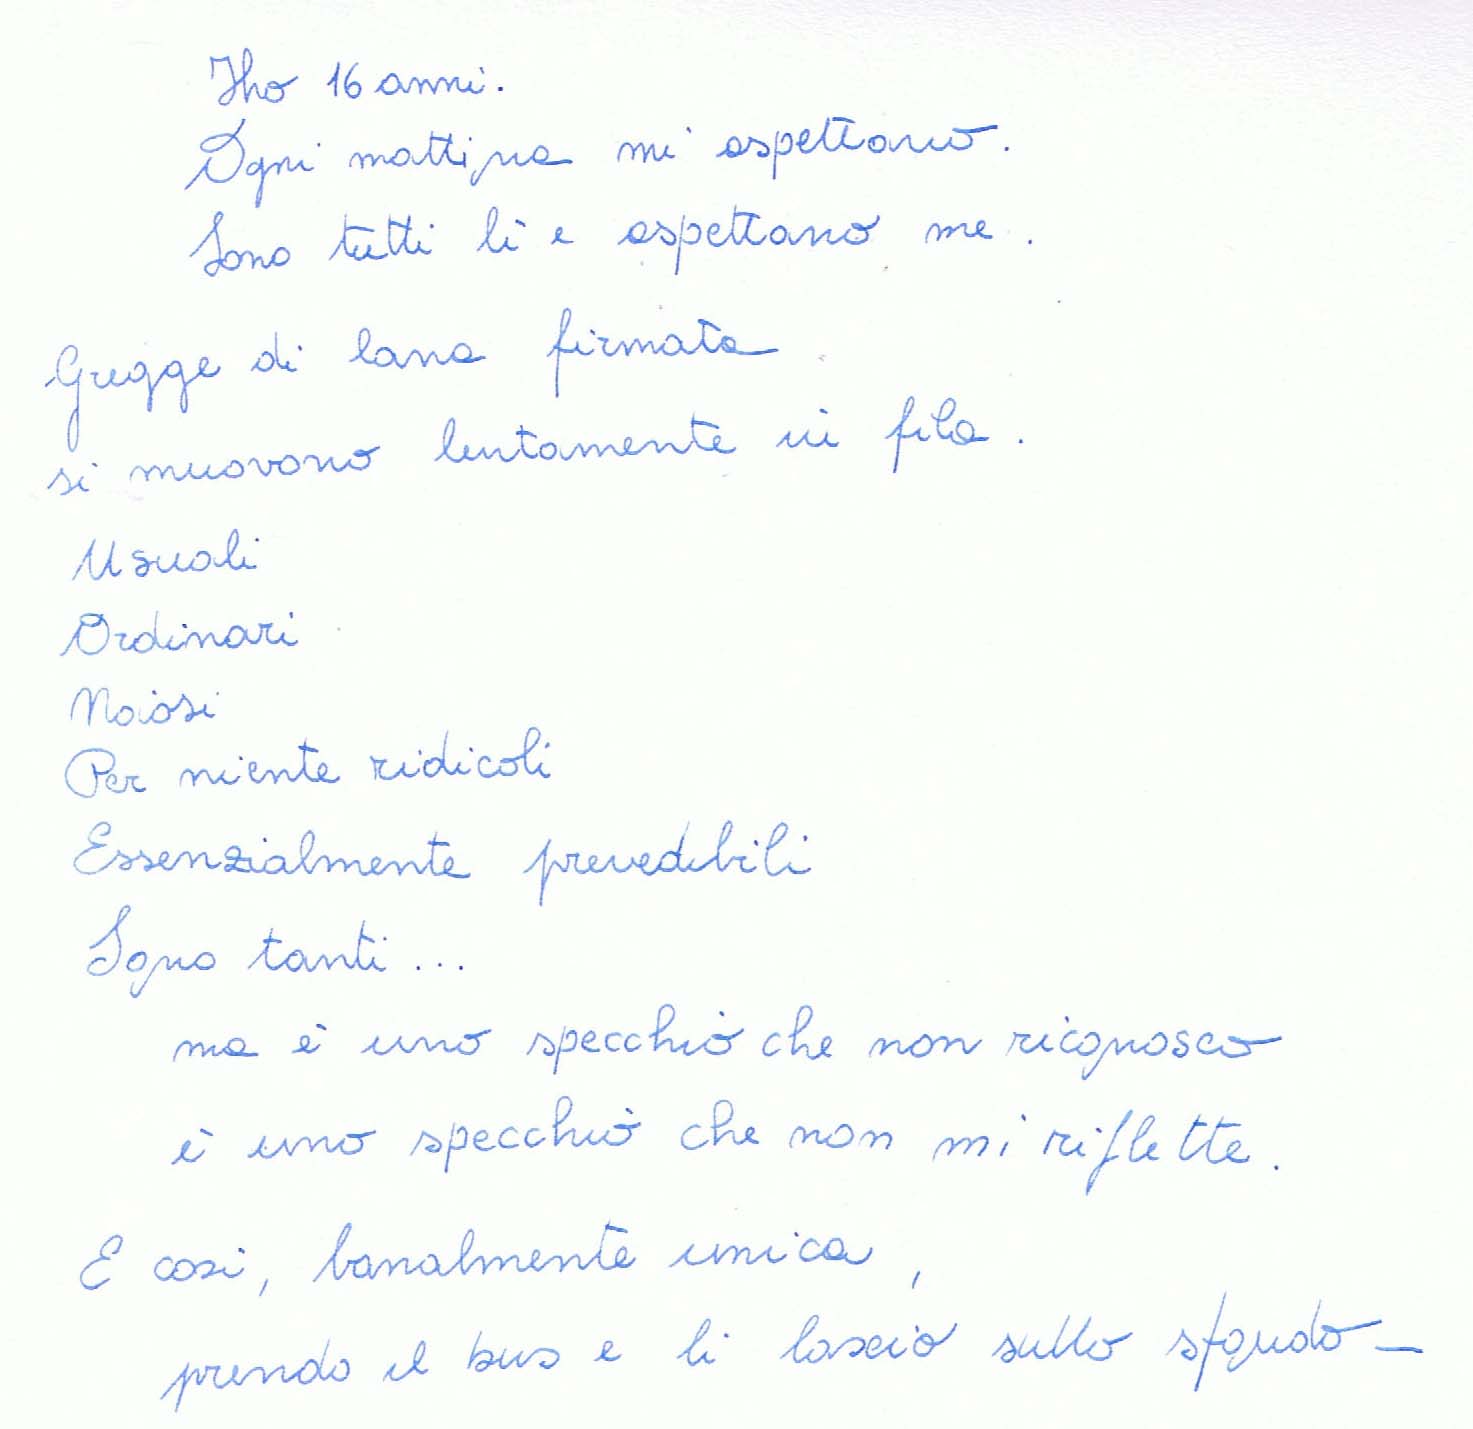 Ho 16 anni.
Ogni mattina mi aspettano.
Sono tutti lì e aspettano me.
Gregge di lana firmata
si muovono lentamente in fila.
Usuali
Ordinari
Noiosi
Per niente ridicoli
Essenzialmente prevedibili
Sono tanti...
ma è uno specchio che non riconosco
è uno specchio che non mi riflette.
E così, banalmente unica,
prendo il bus e li lascio sullo sfondo_